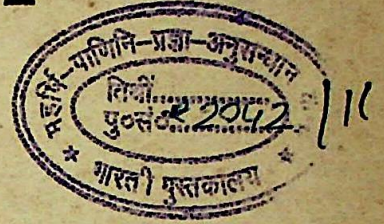 महर्षि-पाणिनि-प्रज्ञा-अनुसन्धान
तिथी..............
पु०सं० R 2042 / 11
* भारती पुस्तकालय *